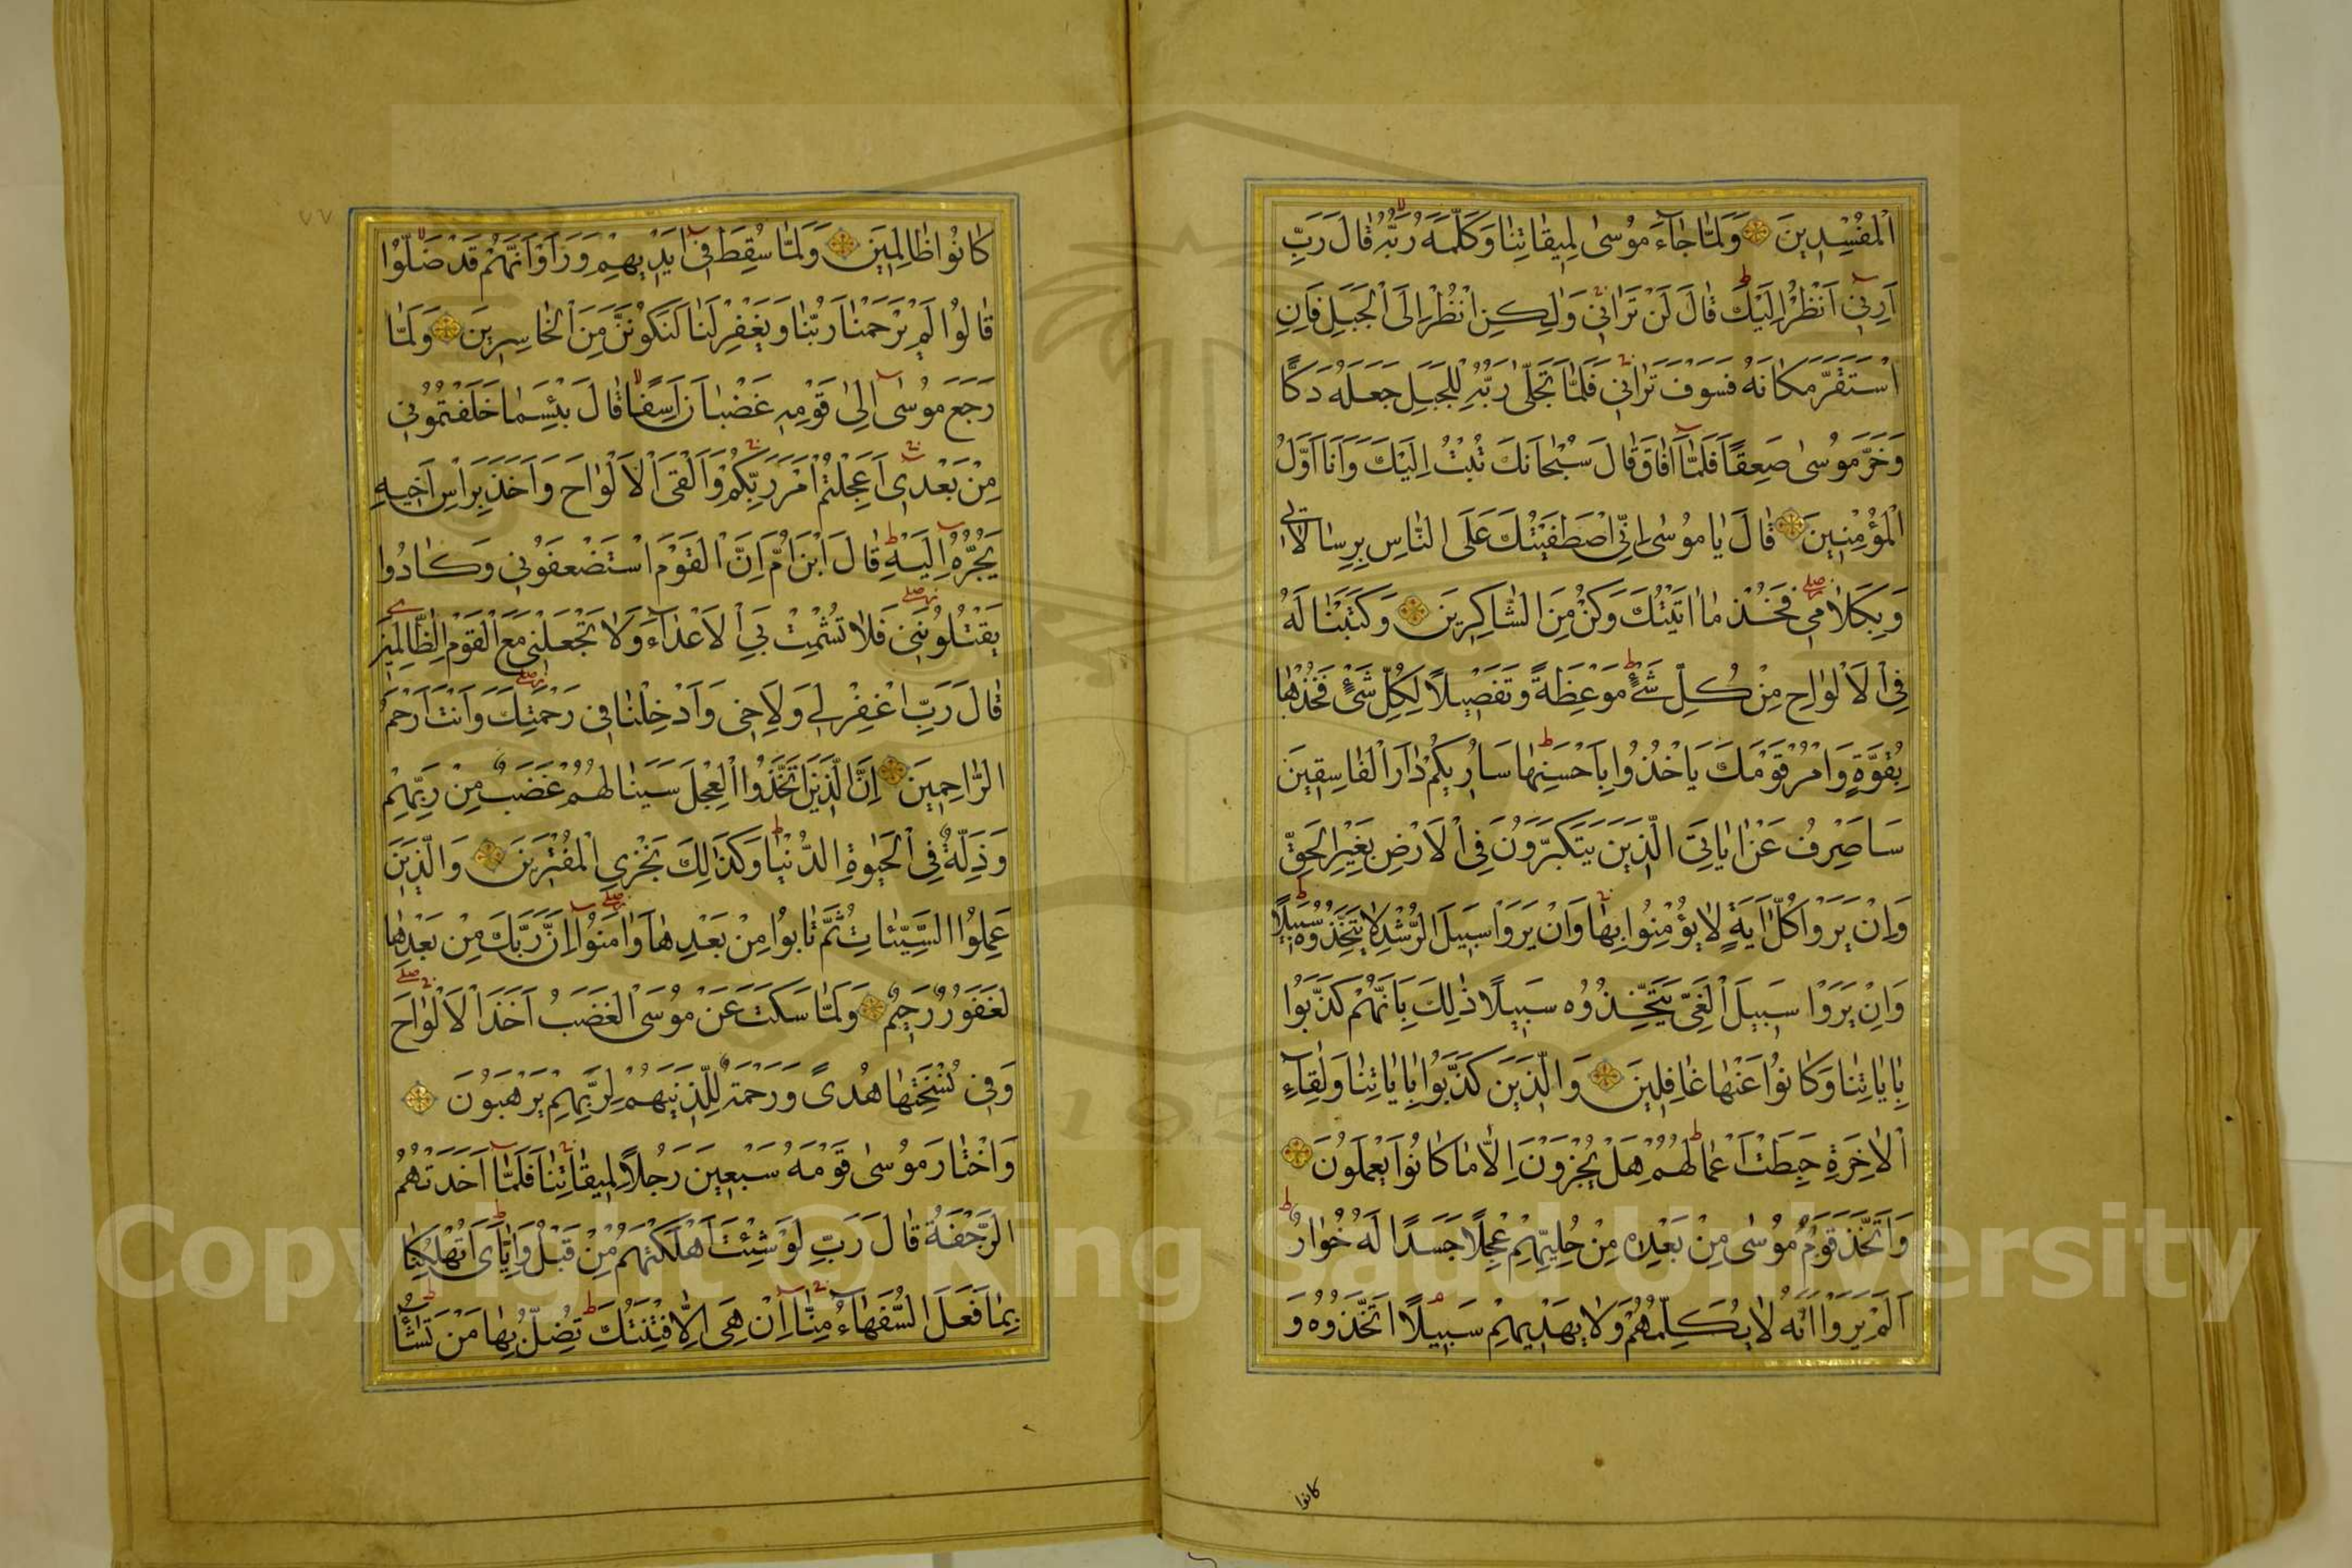 الْمُفْسِدِينَ وَلَمَّا جَاءَ مُوسٰى لِمِيقَاتِنَا وَكَلَّمَهُ رَبُّهُ قَالَ رَبِّ
اَرِنِي اَنْظُرْ اِلَيْكَ قَالَ لَنْ تَرَانِي وَلٰكِنِ انْظُرْ اِلَى الْجَبَلِ فَاِنِ
اسْتَقَرَّ مَكَانَهُ فَسَوْفَ تَرَانِي فَلَمَّا تَجَلّٰى رَبُّهُ لِلْجَبَلِ جَعَلَهُ دَكًّا
وَخَرَّ مُوسٰى صَعِقًا فَلَمَّا اَفَاقَ قَالَ سُبْحَانَكَ تُبْتُ اِلَيْكَ وَاَنَا اَوَّلُ
الْمُؤْمِنِينَ قَالَ يَا مُوسٰى اِنِّي اصْطَفَيْتُكَ عَلَى النَّاسِ بِرِسَالَاتِي
وَبِكَلَامِي فَخُذْ مَا اٰتَيْتُكَ وَكُنْ مِنَ الشَّاكِرِينَ وَكَتَبْنَا لَهُ
فِي الْاَلْوَاحِ مِنْ كُلِّ شَيْءٍ مَوْعِظَةً وَتَفْصِيلًا لِكُلِّ شَيْءٍ فَخُذْهَا
بِقُوَّةٍ وَامُرْ قَوْمَكَ يَاخُذُوا بِاَحْسَنِهَا سَاُرِيكُمْ دَارَ الْفَاسِقِينَ
سَاَصْرِفُ عَنْ اٰيَاتِيَ الَّذِينَ يَتَكَبَّرُونَ فِي الْاَرْضِ بِغَيْرِ الْحَقِّ
وَاِنْ يَرَوْا كُلَّ اٰيَةٍ لَا يُؤْمِنُوا بِهَا وَاِنْ يَرَوْا سَبِيلَ الرُّشْدِ لَا يَتَّخِذُوهُ سَبِيلًا
وَاِنْ يَرَوْا سَبِيلَ الْغَيِّ يَتَّخِذُوهُ سَبِيلًا ذٰلِكَ بِاَنَّهُمْ كَذَّبُوا
بِاٰيَاتِنَا وَكَانُوا عَنْهَا غَافِلِينَ وَالَّذِينَ كَذَّبُوا بِاٰيَاتِنَا وَلِقَاءِ
الْاٰخِرَةِ حَبِطَتْ اَعْمَالُهُمْ هَلْ يُجْزَوْنَ اِلَّا مَا كَانُوا يَعْمَلُونَ
وَاتَّخَذَ قَوْمُ مُوسٰى مِنْ بَعْدِهِ مِنْ حُلِيِّهِمْ عِجْلًا جَسَدًا لَهُ خُوَارٌ
اَلَمْ يَرَوْا اَنَّهُ لَا يُكَلِّمُهُمْ وَلَا يَهْدِيهِمْ سَبِيلًا اتَّخَذُوهُ وَ
كانوا
٧٧
كَانُوا ظَالِمِينَ وَلَمَّا سُقِطَ فِي اَيْدِيهِمْ وَرَاَوْا اَنَّهُمْ قَدْ ضَلُّوا
قَالُوا لَمْ يَرْحَمْنَا رَبُّنَا وَيَغْفِرْ لَنَا لَنَكُونَنَّ مِنَ الْخَاسِرِينَ وَلَمَّا
رَجَعَ مُوسٰى اِلٰى قَوْمِهِ غَضْبَانَ اَسِفًا قَالَ بِئْسَمَا خَلَفْتُمُونِي
مِنْ بَعْدِي اَعَجِلْتُمْ اَمْرَ رَبِّكُمْ وَاَلْقَى الْاَلْوَاحَ وَاَخَذَ بِرَاْسِ اَخِيهِ
يَجُرُّهُ اِلَيْهِ قَالَ ابْنَ اُمَّ اِنَّ الْقَوْمَ اسْتَضْعَفُونِي وَكَادُوا
يَقْتُلُونَنِي فَلَا تُشْمِتْ بِيَ الْاَعْدَاءَ وَلَا تَجْعَلْنِي مَعَ الْقَوْمِ الظَّالِمِينَ
قَالَ رَبِّ اغْفِرْ لِي وَلِاَخِي وَاَدْخِلْنَا فِي رَحْمَتِكَ وَاَنْتَ اَرْحَمُ
الرَّاحِمِينَ اِنَّ الَّذِينَ اتَّخَذُوا الْعِجْلَ سَيَنَالُهُمْ غَضَبٌ مِنْ رَبِّهِمْ
وَذِلَّةٌ فِي الْحَيٰوةِ الدُّنْيَا وَكَذٰلِكَ نَجْزِي الْمُفْتَرِينَ وَالَّذِينَ
عَمِلُوا السَّيِّئَاتِ ثُمَّ تَابُوا مِنْ بَعْدِهَا وَاٰمَنُوا اِنَّ رَبَّكَ مِنْ بَعْدِهَا
لَغَفُورٌ رَحِيمٌ وَلَمَّا سَكَتَ عَنْ مُوسَى الْغَضَبُ اَخَذَ الْاَلْوَاحَ
وَفِي نُسْخَتِهَا هُدًى وَرَحْمَةٌ لِلَّذِينَ هُمْ لِرَبِّهِمْ يَرْهَبُونَ
وَاخْتَارَ مُوسٰى قَوْمَهُ سَبْعِينَ رَجُلًا لِمِيقَاتِنَا فَلَمَّا اَخَذَتْهُمُ
الرَّجْفَةُ قَالَ رَبِّ لَوْ شِئْتَ اَهْلَكْتَهُمْ مِنْ قَبْلُ وَاِيَّايَ اَتُهْلِكُنَا
بِمَا فَعَلَ السُّفَهَاءُ مِنَّا اِنْ هِيَ اِلَّا فِتْنَتُكَ تُضِلُّ بِهَا مَنْ تَشَاءُ
Copyright © King Saud University
195